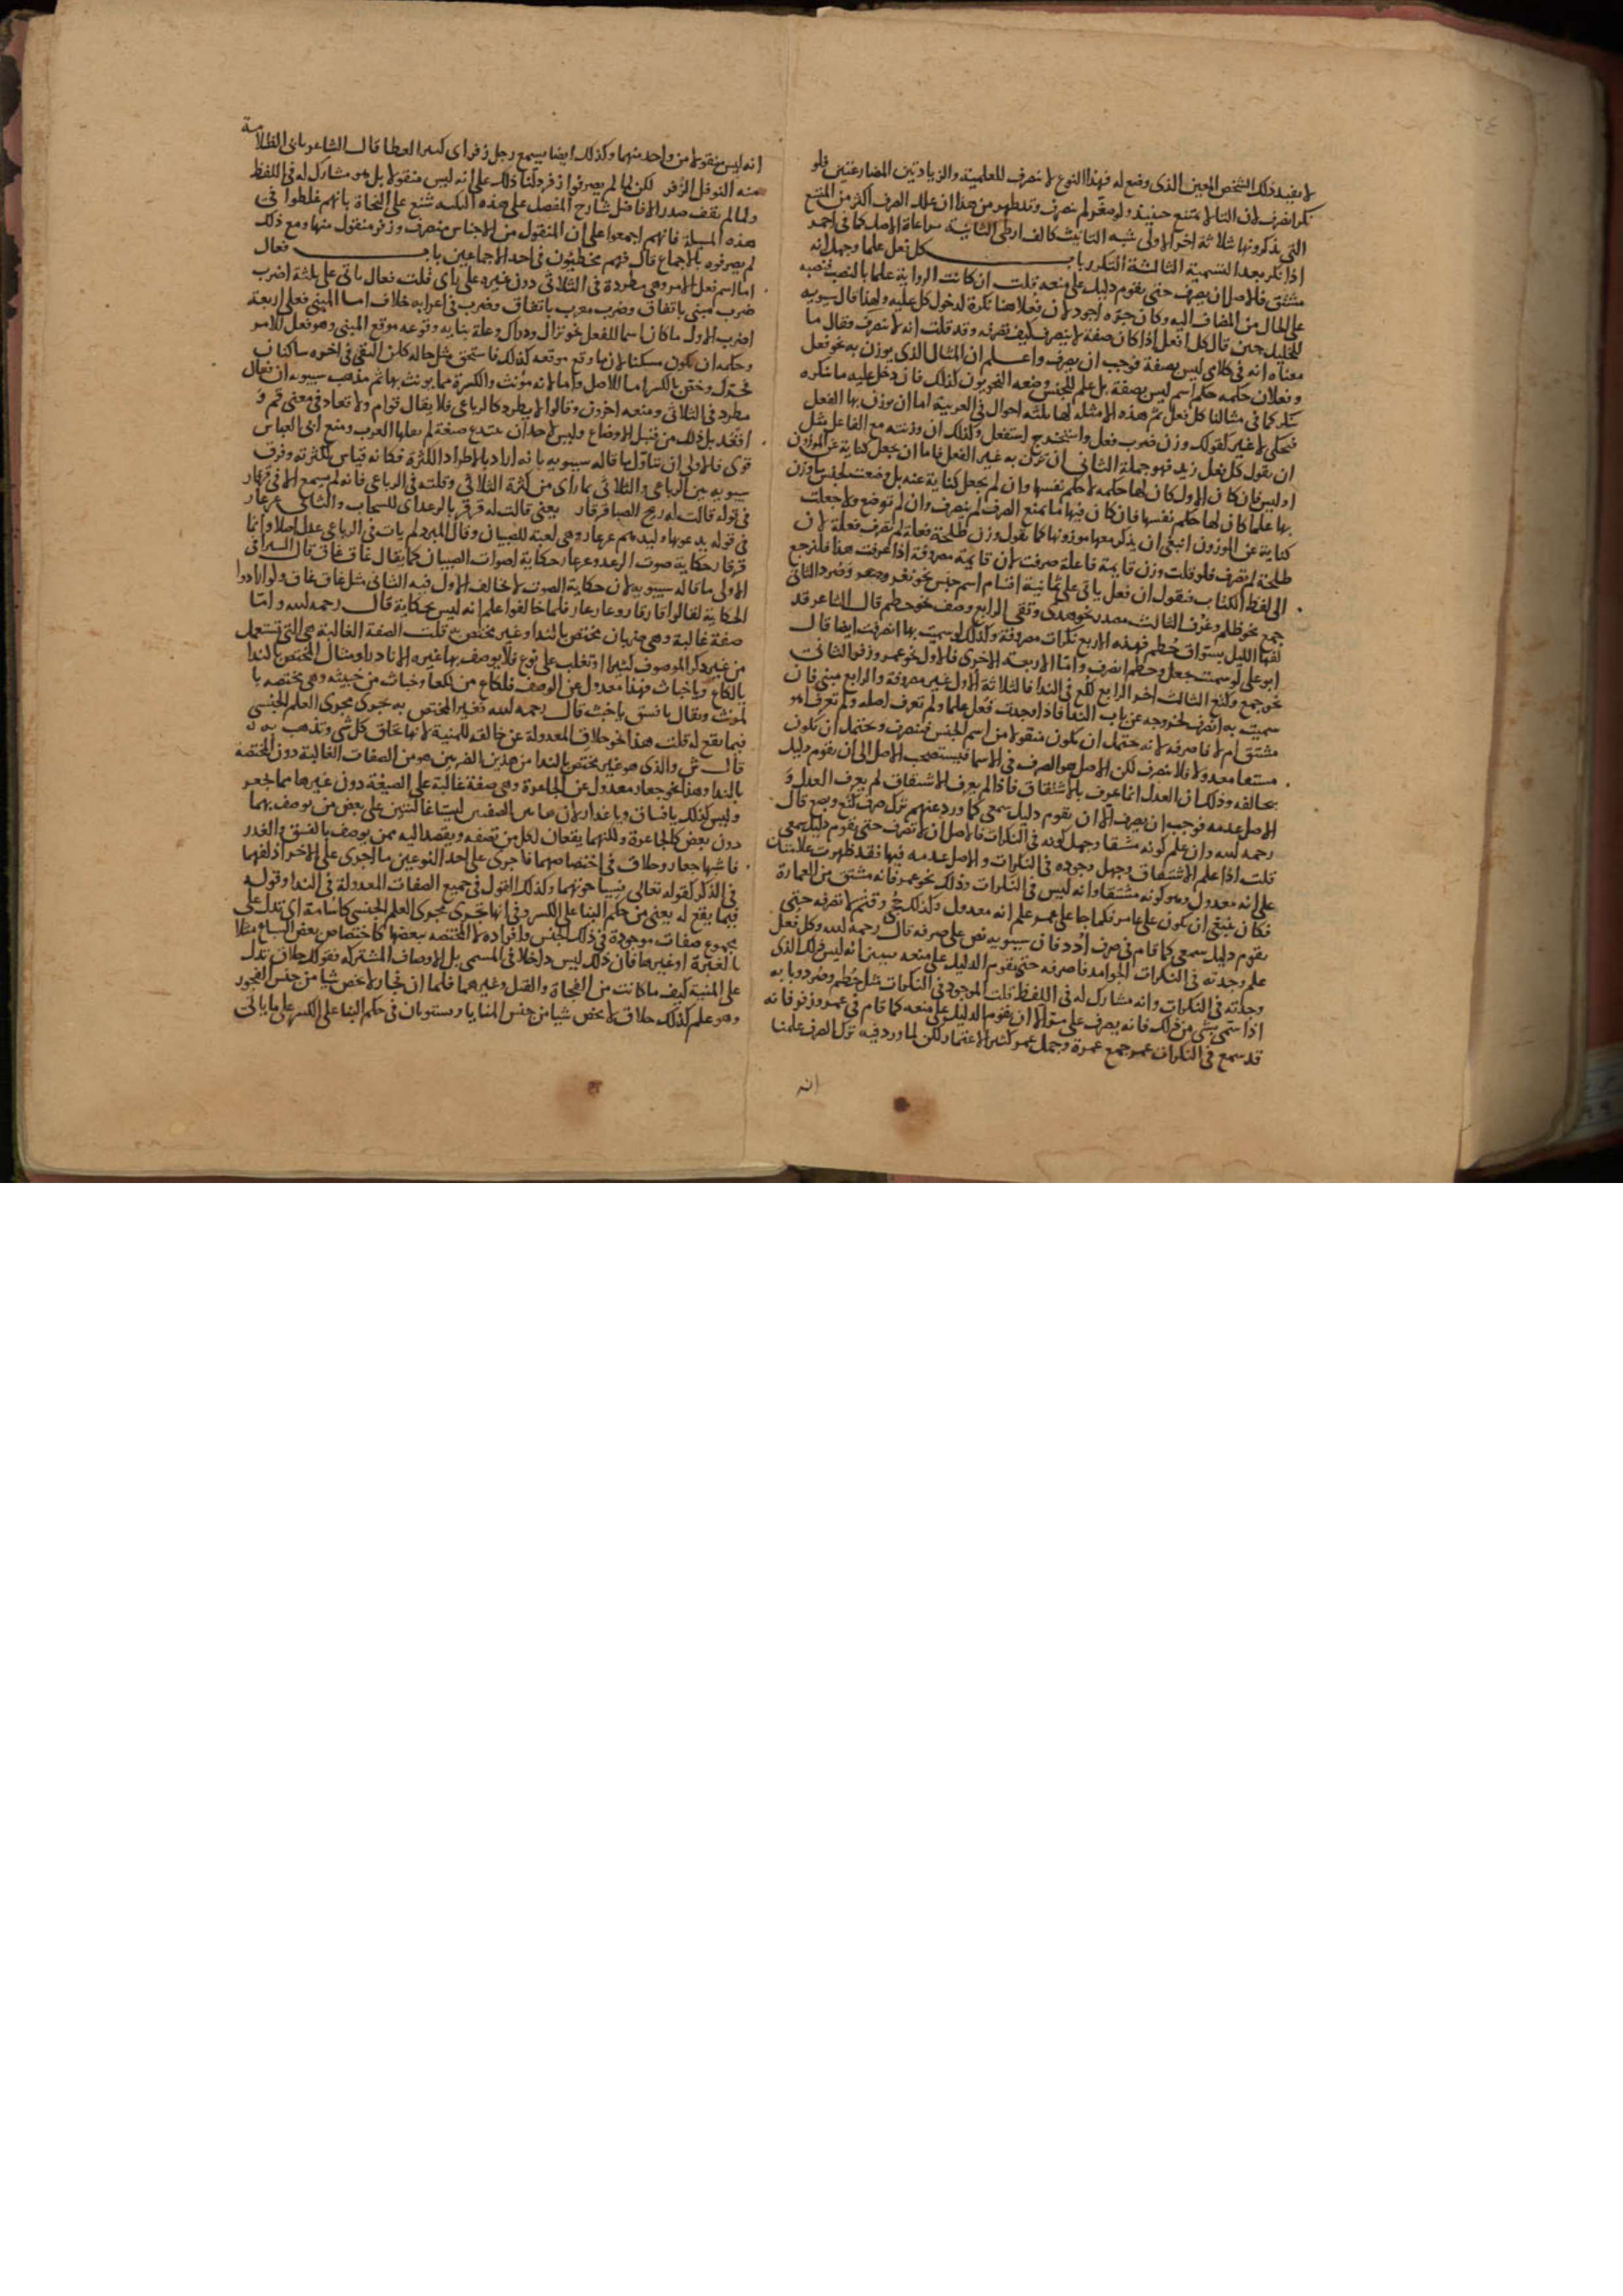 لا يفيد ذلك الشخص المعين الذي وضع له فهذا النوع لا ينصرف للعلمية والزيادتين المضارعتين فلو
نكر انصرف لان التا لا تمتنع حينئذ ولو صغر لم ينصرف وقد ظهر من هذا ان علل الصرف اكثر من المنع
التي يذكرونها ثلاثة اخر الاولى شبه التانيث كالف ارطى الثانية مراعاة الاصل كما في احمر
اذا نكر بعد التسمية الثالثة التكرر باب كل فعل علما وجهل انه
مشتق فالاصل ان يصرف حتى يقوم دليل على منعه قلت ان كانت الرواية علما بالنصب فنصبه
على الحال من المضاف اليه وكان جره اجود لان فعلا هنا نكرة لدخول كل عليه ولهذا قال سيبويه
للخليل حين قال كل افعل اذا كان صفة لا ينصرف كيف تصرفه وقد قلت انه لا ينصرف فقال ما
معناه انه في كلامي ليس بصفة فوجب ان يصرف واعلم ان المثال الذي يوزن به نحو فعل
وفعلان حكمه حكم اسم ليس بصفة بل علم للجنس وضعه النحويون لذلك فان دخل عليه ما ينكره
نكر كما في مثالنا كل فعل ثم هذه الامثلة لها ثلثة احوال في العربية اما ان يوزن بها الفعل
فيحكى لا غير كقولك وزن ضرب فعل واستخرج استفعل وكذلك ان وزنته مع الفاعل مثل
ان يقول كل فعل زيد فهو جملة الثاني ان توزن به غير الفعل فاما ان يجعل كناية عن الموزون
اوليس فان كان الاول كان لها حكمه لا حكم نفسها وان لم يجعل كناية عنه بل وضعت لجنس ما وزن
بها علما كان لها حكم نفسها فان كان فيها ما يمنع الصرف لم يصرف وان لم توضع ولا جعلت
كناية عن الموزون انبغى ان يذكر معها موزونها كما تقول وزن طلحة فعلة لم تصرف فعلة لان
طلحة لم تصرف فلو قلت وزن قايمة فاعلة صرفت لان قايمة مصروفة اذا عرفت هذا فلنرجع
الى لفظ الكتاب فنقول ان فعل ياتي على ثمانية اقسام اسم جنس نحو نغر وصرد الثاني
جمع نحو ظلم وغرف الثالث مصدر نحو هدى وتقى الرابع وصف نحو حطم قال الشاعر قد
لفها الليل بسواق حطم فهذه الاربع نكرات مصروفة وكذلك لو سميت بها انصرفت ايضا قال
ابو علي لو سميت بجعل وحطم انصرف واما الاربعة الاخرى فالاول نحو عمر وزفر الثاني
نحو جمع وكتع الثالث اخر الرابع لكع في الندا فالثلاثة الاول غير مصروفة والرابع مبني فان
سميت به انصرف لخروجه عن باب الندا فاذا وجدت فعل علما ولم تعرف اصله ولم تعرف اهو
مشتق ام لا فاصرفه لانه يحتمل ان يكون منقولا من اسم الجنس فينصرف ويحتمل ان يكون
مستعما معدولا فلا ينصرف لكن الاصل هو الصرف في الاسما فيستصحب الاصل الى ان يقوم دليل
بخالفه وذلك ان العدل انما عرف بالاشتقاق فاذا لم يعرف الاشتقاق لم يعرف العدل و
الاصل عدمه فوجب ان يصرف الا ان يقوم دليل سمعي كما ورد عنهم ترك صرف كتع وبصع قال
رحمه الله وان علم كونه مشتقا وجهل كونه في النكرات فالاصل ان لا تصرف حتى يقوم دليل سمعي
قلت اذا علم الاشتقاق وجهل وجوده في النكرات والاصل عدمه فيها فقد ظهرت علامتان
على انه معدول وهو كونه مشتقا وانه ليس في النكرات وذلك نحو عمر فانه مشتق من العمارة
فكان ينبغي ان يكون على عامر فلما جا على عمر علم انه معدول وكذلك جحى وقثم لا تصرفه حتى
يقوم دليل سمعي كما قام في صرف ادد فان سيبويه نص على صرفه قال رحمه الله وكل فعل
علم وجدته في النكرات الجوامد فاصرفه حتى يقوم الدليل على منعه سببن انه ليس ذلك الذي
وجدته في النكرات وانه مشارك له في اللفظ قلت الموجود في النكرات مثل حطم وصرد وبابه
اذا سمي بشي من ذلك فانه يصرف على متوالا ان يقوم الدليل على منعه كما قام في عمر وزفر فانه
قد سمع في النكرات عمر جمع عمرة وجمل عمر كثير الاعتمار لكن لما ورد فيه ترك الصرف علمنا
انه
انه ليس منقولا من واحد منهما وكذلك ايضا سمع رجل زفر اي كثير العطا قال الشاعر يابى الظلامة
منه النوفل الزفر لكن لما لم يصرفوا زفر دلنا ذلك على انه ليس منقولا بل هو مشارك له في اللفظ
ولما لم يقف صدر الافاضل شارح المفصل على هذه النكتة شنع على النحاة بانهم غلطوا في
هذه المسلة فانهم اجمعوا على ان المنقول من الاجناس منصرف وزفر منقول منها ومع ذلك
لم يصرفوه بالاجماع قال فهم مخطيون في احد الاجماعين باب فعال
اما اسم فعل الامر وهي مطردة في الثلاثي دون غيره على راي قلت فعال ياتي على ثلثة اضرب
ضرب مبني باتفاق وضرب معرب باتفاق وضرب في اعرابه خلاف اما المبني فعلى اربعة
اضرب الاول ما كان اسما للفعل نحو نزال ودراك وعلة بنايه وقوعه موقع المبني وهو فعل الامر
وحكمه ان يكون مسكنا لانها وقع موقعه كذلك فاستحق مثل حاله لكن التقى في اخره ساكنان
فحرك وخص بالكسر اما للاصل واما لانه مؤنث والكسرة مما يونث بها ثم مذهب سيبويه ان فعال
مطرد في الثلاثي ومنعه اخرون وقالوا لا يطرد كالرباعي فلا يقال قوام ولا قعاد في معنى قم و
اقعد بل ذلك من قبل الاوضاع وليس لاحد ان يبتدع صيغة لم يقلها العرب ومنع ابي العباس
قوى فالاولى ان نتاول ما قاله سيبويه بانه اراد بالاطراد الكثرة فكانه قياس لكثرته وفرق
سيبويه بين الرباعي والثلاثي بما راى من كثرة الثلاثي وقلته في الرباعي فانه لم يسمع الا في قرقار
في قوله قالت له ريح الصبا قرقار يعني قالت له قرقر بالرعد اي للسحاب والثاني عرعار
في قوله يدعو بها وليدهم عرعار وهي لعبة للصبيان وقال المبرد لم يات في الرباعي عدل اصلا وانما
قرقار حكاية صوت الرعد وعرعار حكاية اصوات الصبيان كما يقال غاق غاق قال السيرافي
الاولى ما قاله سيبويه لان حكاية الصوت لا يخالف الاول فيه الثاني مثل غاق غاق ولو ارادوا
الحكاية لقالوا قار قار وعار عار فلما خالفوا علم انه ليس بحكاية قال رحمه الله واما
صفة غالبة وهي ضربان مختص بالندا وغير مختص به قلت الصفة الغالبة هي التي تستعمل
من غير ذكر الموصوف كثيرا او تغلب على نوع فلا يوصف بها غيره الا نادرا ومثال المختص بالندا
يا لكاع ويا خباث فهذا معدول عن الوصف فلكاع من لكعا وخباث من خبيثة وهي مختصة با
لمونث ويقال يا فسق يا خبث قال رحمه الله فغير المختص به تجرى مجرى العلم الجنسي
فيما يقع له قلت هذا نحو حلاق المعدولة عن حالقة للمنية لانها تحلق كل شي وتذهب به
قال ش والذي هو غير مختص بالندا من هذين الضربين هو من الصفات الغالبة دون المختصة
بالندا وهذا نحو جعار معدول عن الجاعرة وهي صفة غالبة على الضبع دون غيرها مما جعر
وليس كذلك يا فساق ويا غدار لان هاتين الصفتين ليستا غالبتين على بعض من يوصف بهما
دون بعض كالجاعرة ولكنهما يقعان لكل من تصفه ويقصد اليه ممن يوصف بالفسق والغدر
فاشبها جعار وحلاق في اختصاصهما فاجرى على احد النوعين ما اجرى على الاخر اذ لفهما
في الذكر كقوله تعالى نسيا حوتهما وكذلك القول في جميع الصفات المعدولة في الندا وقوله
فيما يقع له يعني من حكم البنا على الكسر وفي انها تجرى مجرى العلم الجنسي كاسامة اي تدل على
مجموع صفات موجودة في ذلك الجنس وافراده لا المختصه ببعضها كاختصاص بعض السباع مثلا
بالغبرة او غيرها فان ذلك ليس داخلا في المسمى بل الاوصاف المشتركة فقولك حلاق تدل
على المنية كيف ما كانت من الفجاة والقتل وغيرهما فلما ان فجار لا تخص شيا من جنس الفجور
وهو علم كذلك حلاق لا تخص شيا من جنس المنايا ويستويان في حكم البنا على الكسر على ما ياتي